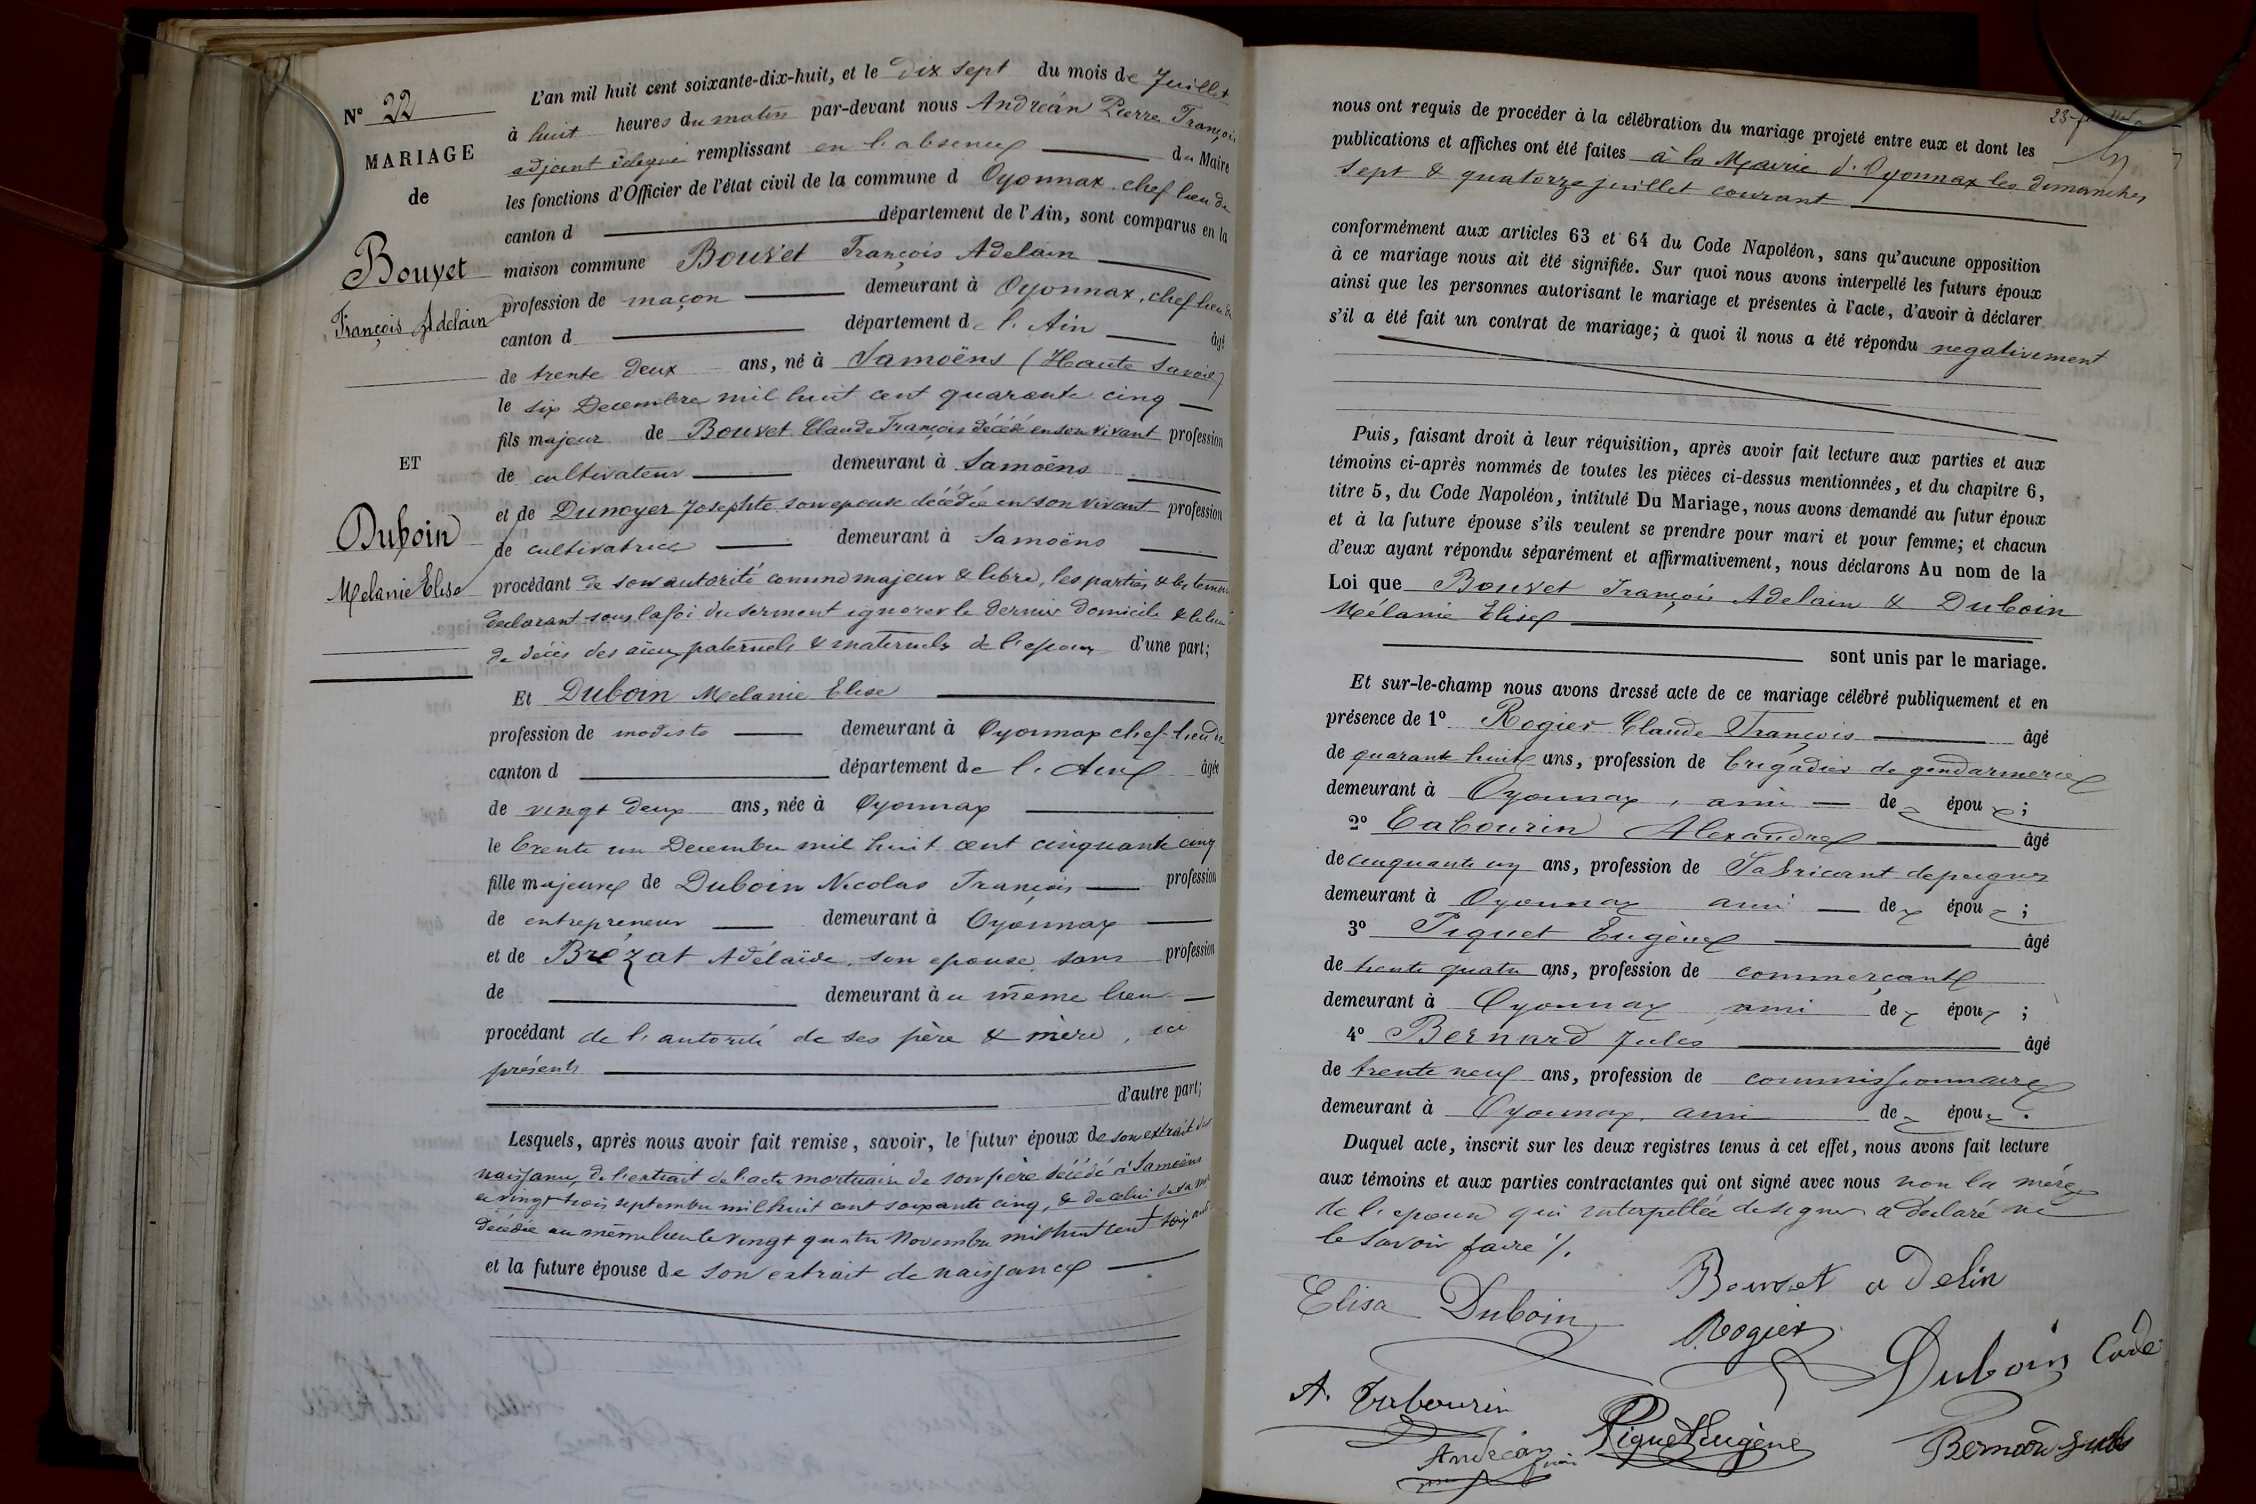 N° 22
MARIAGE
de
Bouvet
François Adelain
ET
Duboin
Melanie Elise
L'an mil huit cent soixante-dix-huit, et le dix sept du mois de Juillet
à huit heures du matin par-devant nous Andréan Pierre François
adjoint délégué remplissant en l'absence du Maire
les fonctions d'Officier de l'état civil de la commune d Oyonnax, chef lieu de
canton d département de l'Ain, sont comparus en la
maison commune Bouvet François Adelain
profession de maçon demeurant à Oyonnax, chef lieu de
canton d département de l'Ain âgé
de trente deux ans, né à Samoëns (Haute Savoie)
le six Decembre mil huit cent quarante cinq
fils majeur de Bouvet Claude François décédé en son vivant profession
de cultivateur demeurant à Samoëns
et de Dunoyer Josephte son epouse décédée en son vivant profession
de cultivatrice demeurant à Samoëns
procédant de son autorité comme majeur & libre, les parties & les temoins
declarant sous la foi du serment ignorer le dernier domicile & le lieu
de décès des aïeux paternels & maternels de l'epoux d'une part;
Et Duboin Melanie Elise
profession de modiste demeurant à Oyonnax chef-lieu de
canton d département de l'Ain âgée
de vingt deux ans, née à Oyonnax
le trente un Decembre mil huit cent cinquante cinq
fille majeure de Duboin Nicolas François profession
de entrepreneur demeurant à Oyonnax
et de Brézat Adélaïde, son epouse, sans profession
de demeurant à u même lieu
procédant de l'autorité de ses père & mère, ici
présents
d'autre part;
Lesquels, après nous avoir fait remise, savoir, le futur époux de son extrait de
naissance, de l'extrait de l'acte mortuaire de son père décédé à Samoëns
le vingt trois septembre mil huit cent soixante cinq, & de celui de sa mère
décédée au même lieu le vingt quatre Novembre mil huit cent
et la future épouse de son extrait de naissance
nous ont requis de procéder à la célébration du mariage projeté entre eux et dont les
publications et affiches ont été faites à la Mairie d'Oyonnax les dimanches
sept & quatorze juillet courant
conformément aux articles 63 et 64 du Code Napoléon, sans qu'aucune opposition
à ce mariage nous ait été signifiée. Sur quoi nous avons interpellé les futurs époux
ainsi que les personnes autorisant le mariage et présentes à l'acte, d'avoir à déclarer
s'il a été fait un contrat de mariage; à quoi il nous a été répondu negativement
Puis, faisant droit à leur réquisition, après avoir fait lecture aux parties et aux
témoins ci-après nommés de toutes les pièces ci-dessus mentionnées, et du chapitre 6,
titre 5, du Code Napoléon, intitulé Du Mariage, nous avons demandé au futur époux
et à la future épouse s'ils veulent se prendre pour mari et pour femme; et chacun
d'eux ayant répondu séparément et affirmativement, nous déclarons Au nom de la
Loi que Bouvet François Adelain & Duboin
Mélanie Elise
sont unis par le mariage.
Et sur-le-champ nous avons dressé acte de ce mariage célébré publiquement et en
présence de 1° Rogier Claude François âgé
de quarante huit ans, profession de brigadier de gendarmerie
demeurant à Oyonnax, ami de épou ;
2° Tabourin Alexandre âgé
de cinquante un ans, profession de Fabricant de peignes
demeurant à Oyonnax ami de épou ;
3° Piquet Eugène âgé
de trente quatre ans, profession de commerçant
demeurant à Oyonnax ami de épou ;
4° Bernard Jules âgé
de trente neuf ans, profession de commissionnaire
demeurant à Oyonnax, ami de épou .
Duquel acte, inscrit sur les deux registres tenus à cet effet, nous avons fait lecture
aux témoins et aux parties contractantes qui ont signé avec nous non la mère
de l'epouse qui interpellée de signer a déclaré ne
le savoir faire %.
Elisa Duboin Bouvet adelin
Rogier
Duboin
A. Tabourin
Andréan
Piquet Eugène
Bernard Jules